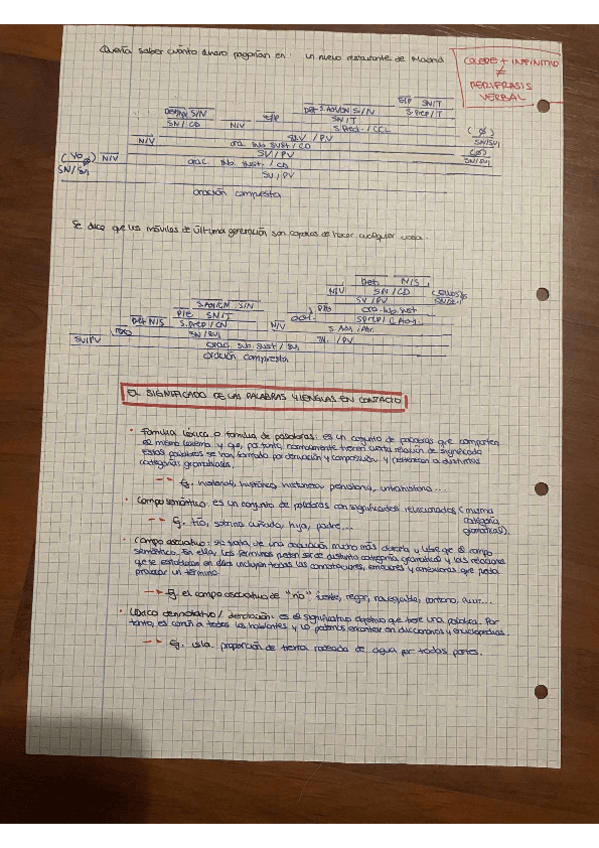 Quería saber cuánto dinero pagarían en un nuevo restaurante de Madrid
QUERER + INFINITIVO
≠
PERÍFRASIS
VERBAL
E/P SN/T
S/N
S.Prep/T
SN/CD N/V E/P SN/T
S.Prep./CCL (ø)
N/V SV/PV SN/SUJ
ora. sub. sust/CD (ø)
(Yo) N/V SV/PV SN/SUJ
SN/SUJ orac. sub. sust. / CD
SV/PV
oración compuesta
Se dice que los móviles de última generación son capaces de hacer cualquier cosa.
Det N/S
N/V SN/CD (ellos)
S.Adj/CN S/N SV/PV
P/E SN/T ora. sub. sust
Det N/S S.Prep/CN N/V S.Prep/C.Adj.
nexo SN/SUJ S.Adj./Atr.
SV/PV SV./PV
orac. sub. sust/SUJ
oración compuesta
EL SIGNIFICADO DE LAS PALABRAS Y LENGUAS EN CONTACTO
• Familia léxica o familia de palabras: es un conjunto de palabras que comparten
el mismo lexema y que, por tanto, normalmente tienen cierta relación de significado
Estas palabras se han formado por derivación y composición y pertenecen a distintas
categorías gramaticales.
Ej. historial, histórico, historieta, prehistoria, intrahistoria....
• Campo semántico: es un conjunto de palabras con significados relacionados (misma
categoría
gramatical).
Ej. tío, sobrina, cuñada, hija, padre...
• Campo asociativo: se trata de una asociación mucho más abierta y libre que el campo
semántico. En ella, los términos pueden ser de distinta categoría gramatical y las relaciones
que se establecen en ellos incluyen todas las connotaciones, emociones y conexiones que pueda
provocar un término.
Ej. el campo asociativo de "río" fuente, regar, navegable, contorno, azul...
• Léxico denotativo / denotación: es el significativo objetivo que tiene una palabra. Por
tanto, es común a todos los hablantes y lo podemos encontrar en diccionarios y enciclopedias.
Ej. isla: proporción de tierra rodeada de agua por todas partes.